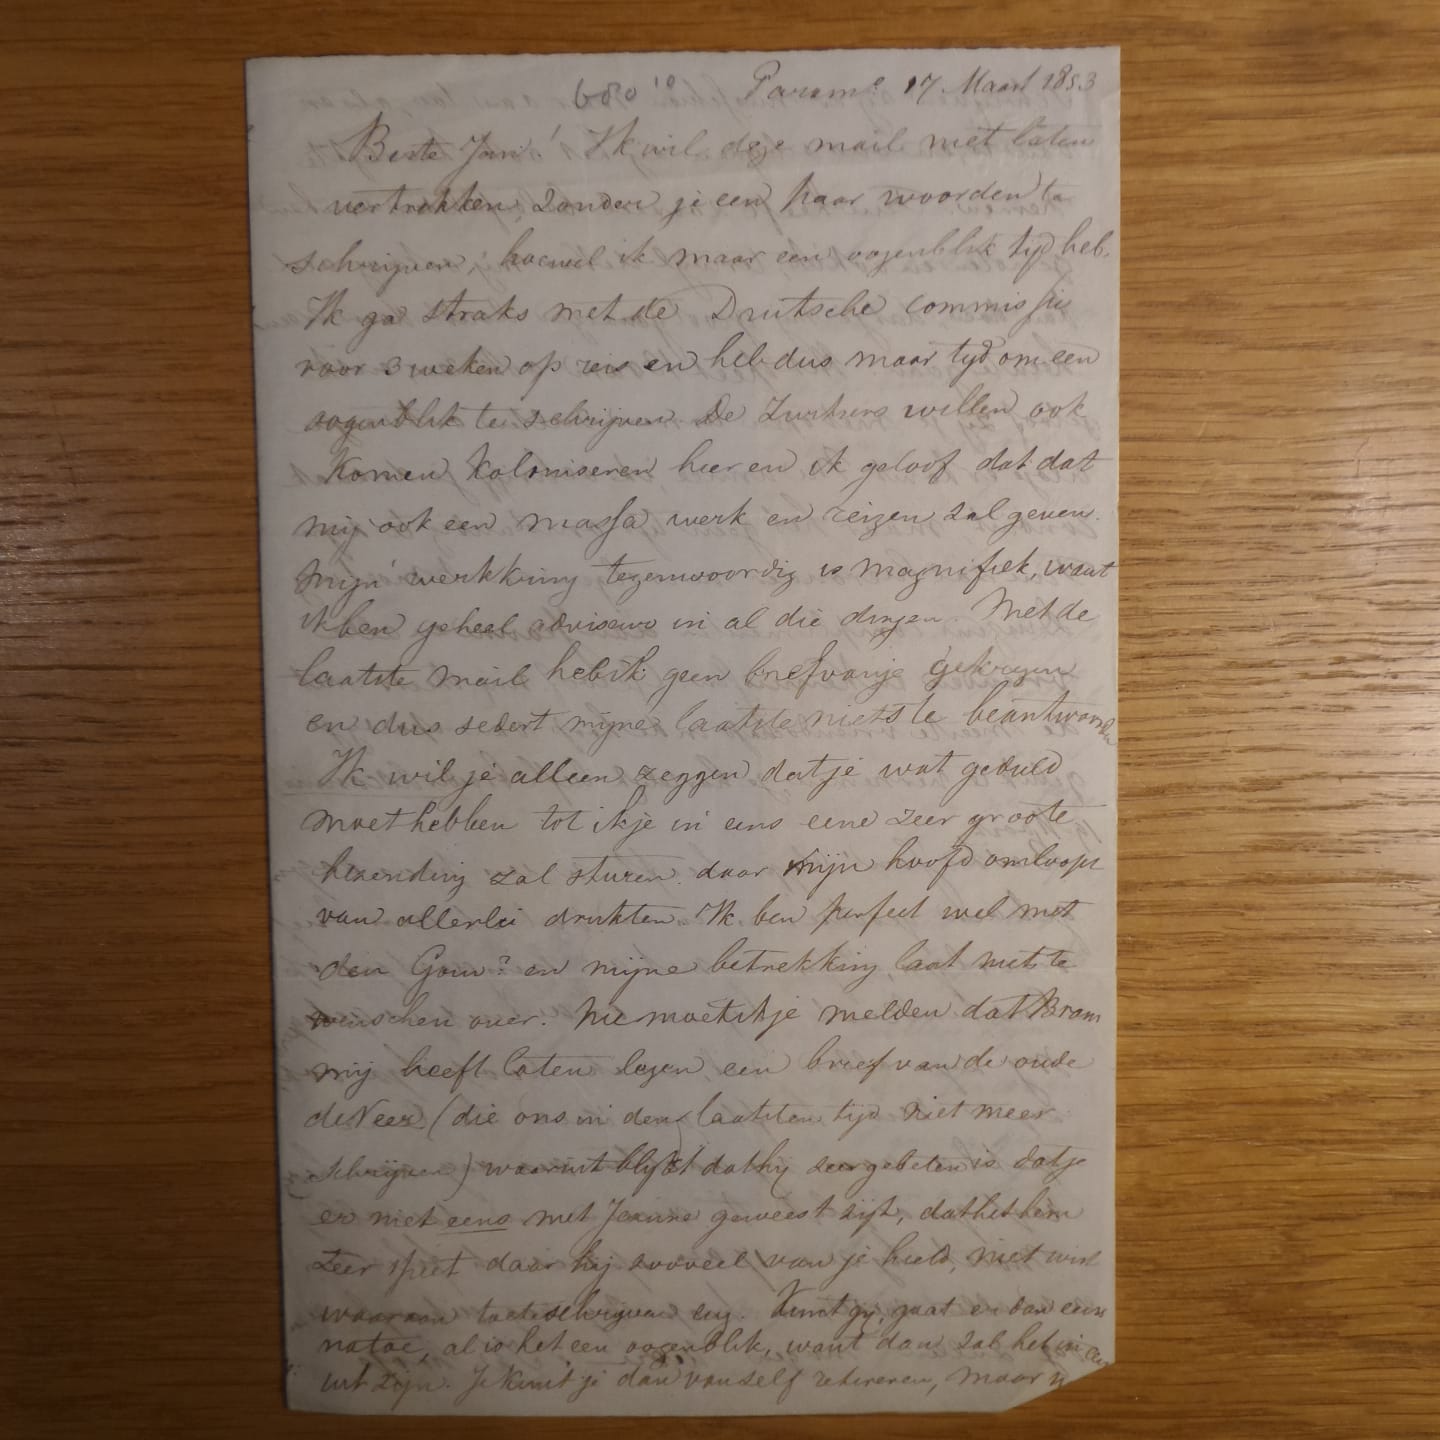 680 10 Paramo 17 Maart 1853
Beste Jan! Ik wil deze mail niet laten
vertrekken, zonder je een paar woorden te
schrijven, hoewel ik maar een oogenblik tyd heb.
Ik ga straks met de Duitsche commissie
voor 3 weken op reis en heb dus maar tyd om een
oogenblik te schrijven. De Zwitsers willen ook
komen koloniseren hier en ik geloof dat dat
mij ook een massa werk en reizen zal geven.
Mijn werkkring tegenwoordig is magnifiek, want
ik ben geheel adviseur in al die dingen. Met de
laatste mail heb ik geen brief van je gekregen
en dus sedert mijne laatste niets te beantwoorden
Ik wil je alleen zeggen dat je wat geduld
moet hebben tot ik je in eens eene zeer groote
bezending zal sturen. daar mijn hoofd omloopt
van allerlei drukten. Ik ben perfect wel met
den Gouvr en mijne betrekking laat niets te
wenschen over. Nu moet ik je melden dat Bram
mij heeft laten lezen een brief van de oude
de Veer (die ons in den laatsten tijd niet meer
schrijven) waaruit blykt dat hij zeer gebeten is dat je
er niet eens met Jeanne geweest zijt, dat het hem
zeer speet daar hij zooveel van je hield, niet wist
waaraan toeteschrijven enz. Kunt gij, gaat er dan eens
natoe, al is het een oogenblik, want dan zal het in
uit zijn. Je kunt je dan vanself retireren, maar